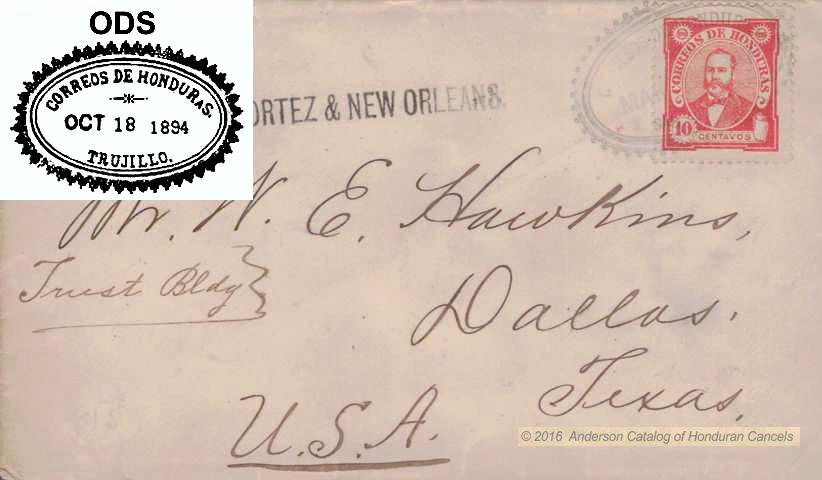 ODS
CORREOS DE HONDURAS.
OCT 18 1894
TRUJILLO.
ORTEZ & NEW ORLEANS.
CORREOS DE HONDURAS
10 CENTAVOS
Mr. W. E. Hawkins,
Trust Bldg
Dallas.
Texas.
U.S.A.
© 2016 Anderson Catalog of Honduran Cancels